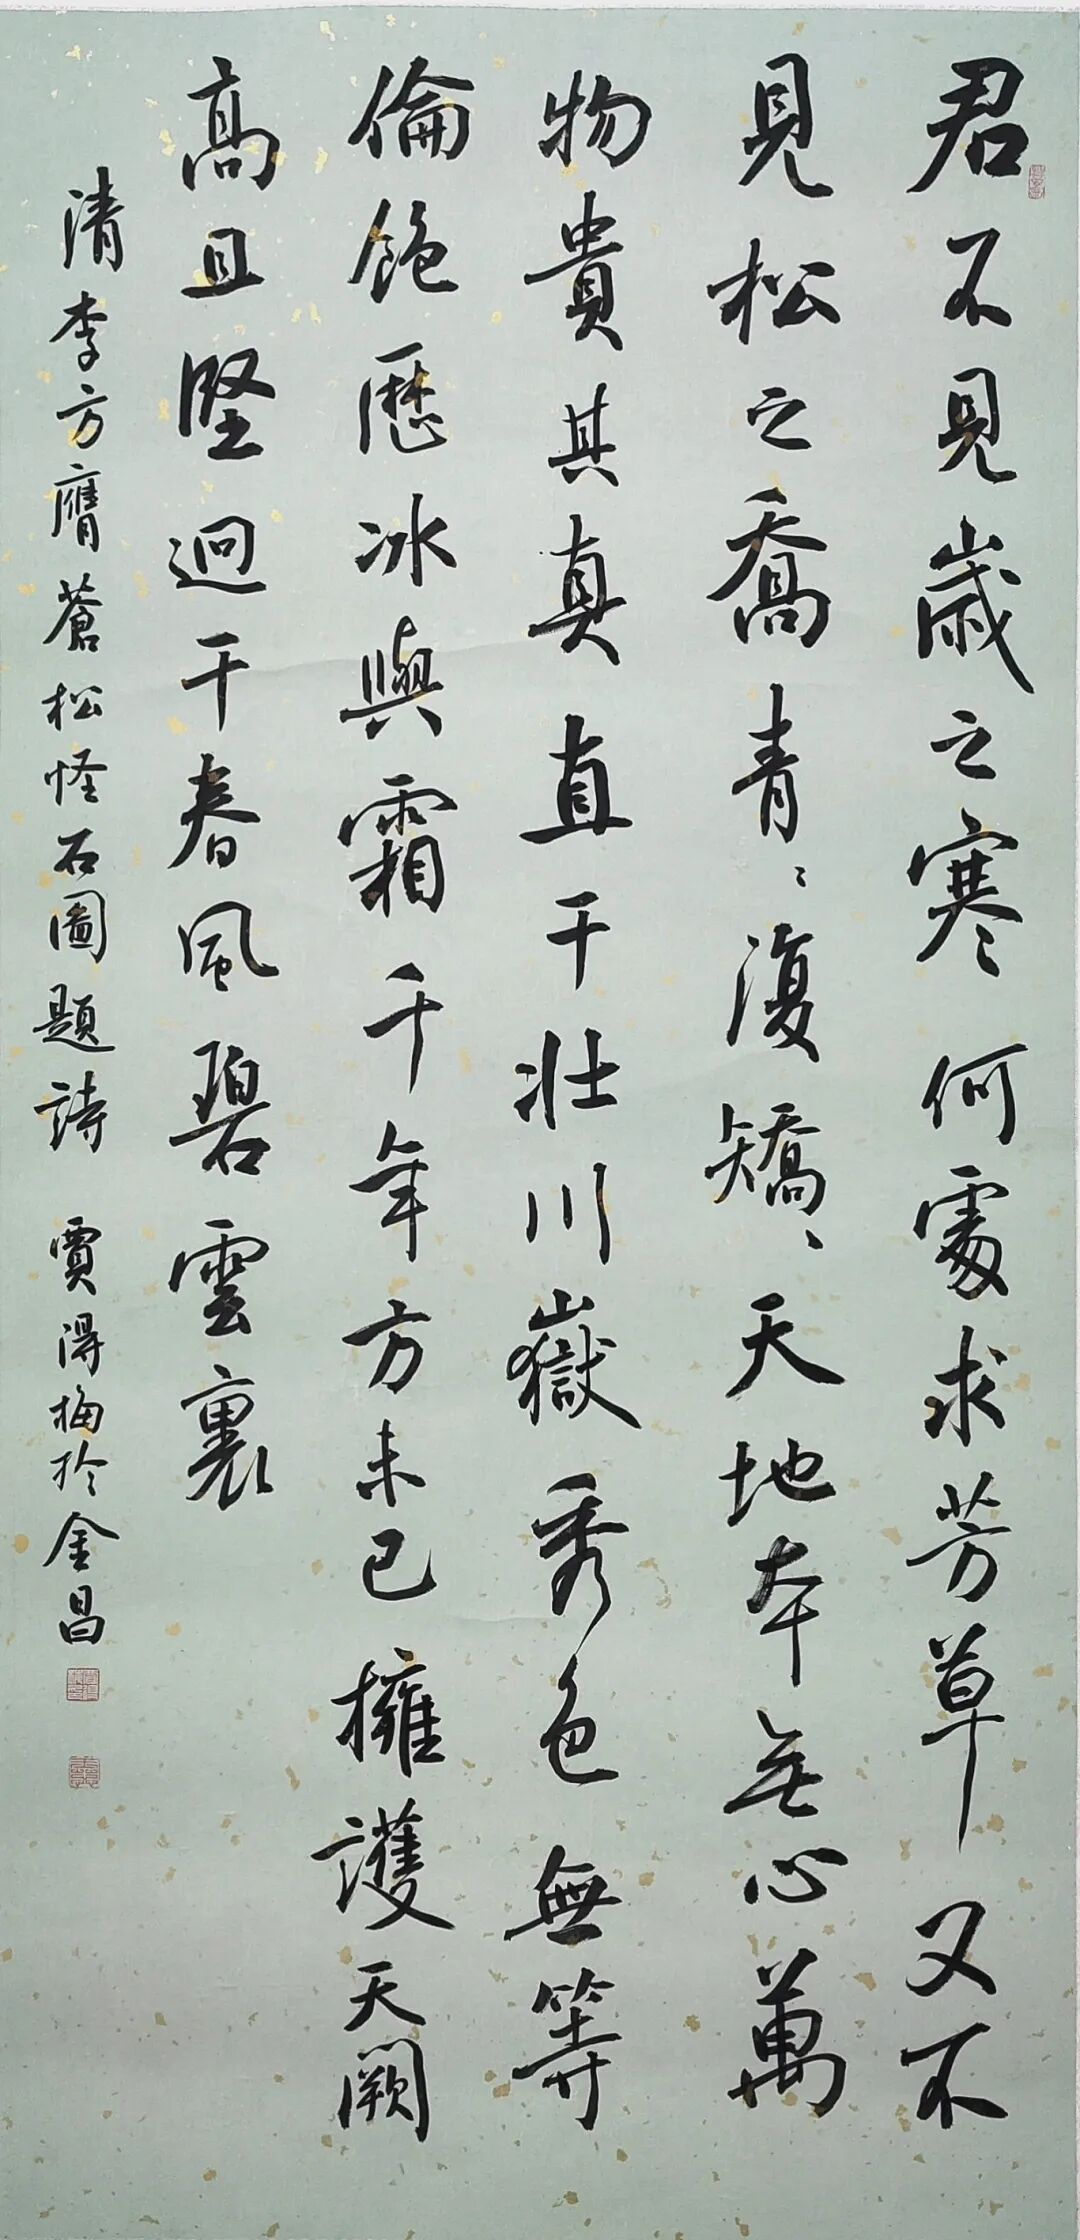 君不見歲之寒何處求芳草又不
見松之喬青〻復矯〻天地本無心萬
物貴其真直干壯川嶽秀色無等
倫飽歷冰與霜千年方未已擁護天闕
高且堅迥干春風碧雲裏
清李方膺蒼松怪石圖題詩 賈得梅於金昌